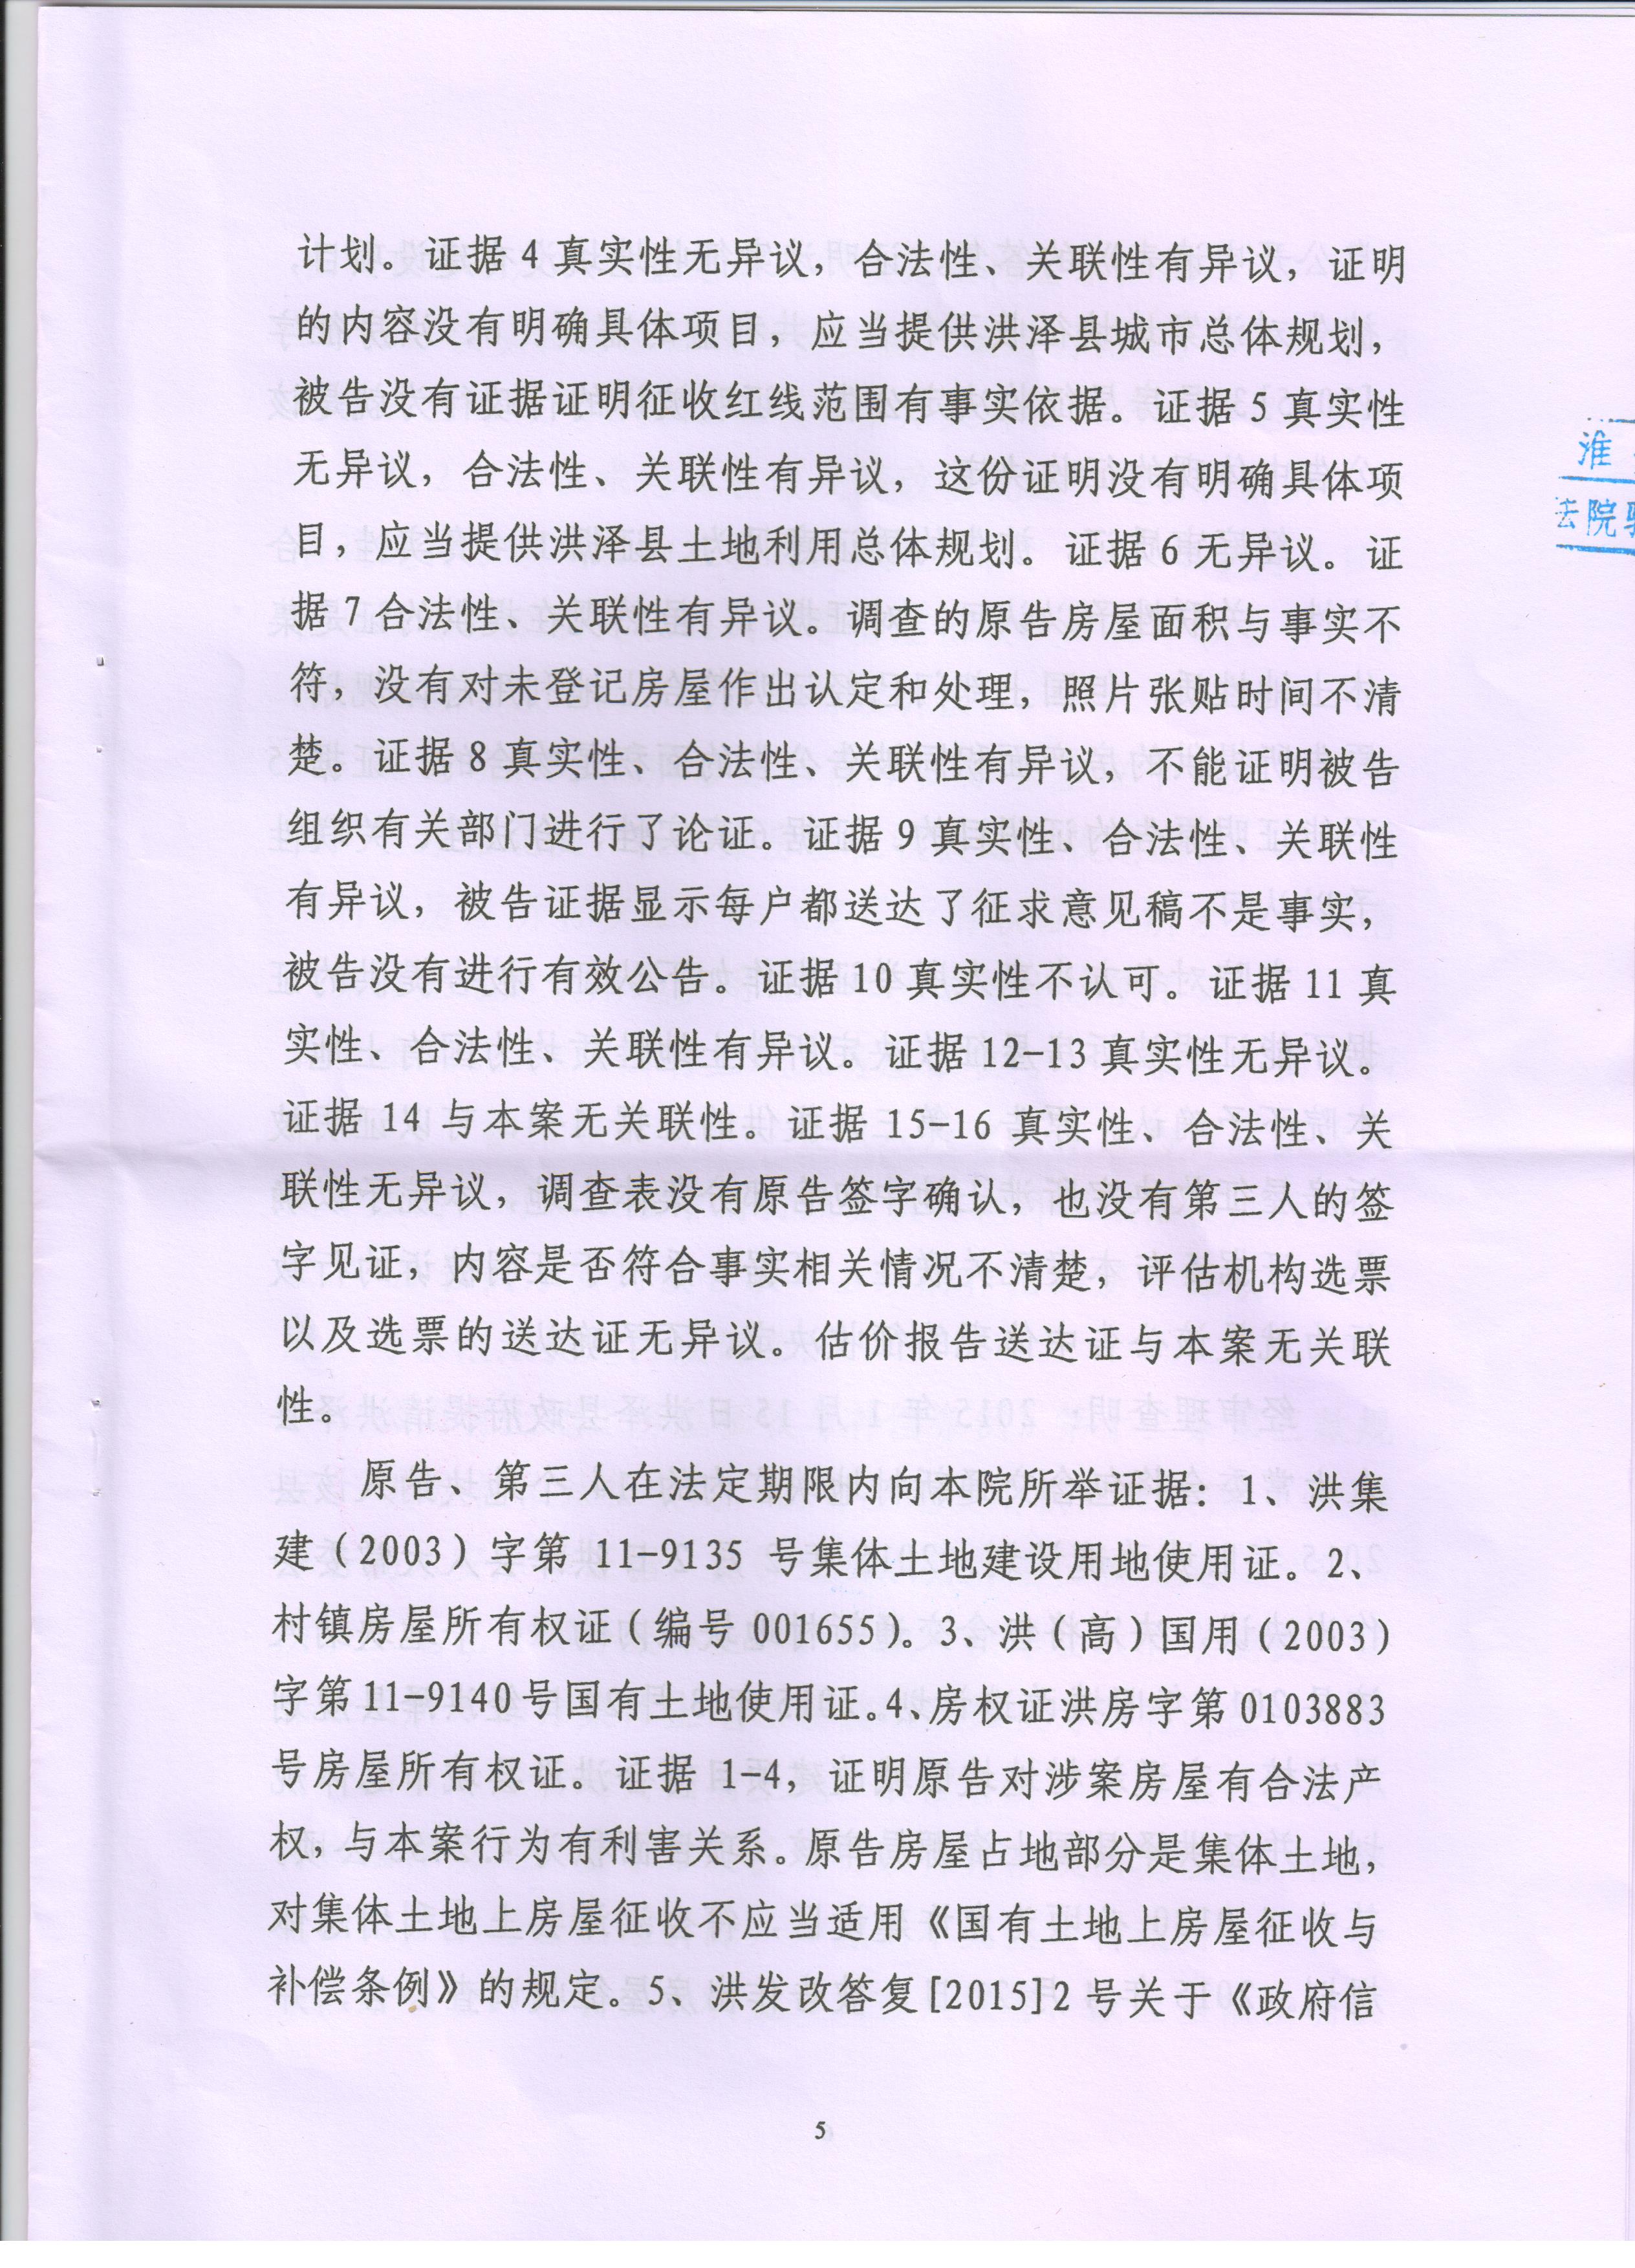 计划。证据 4 真实性无异议，合法性、关联性有异议，证明
的内容没有明确具体项目，应当提供洪泽县城市总体规划，
被告没有证据证明征收红线范围有事实依据。证据 5 真实性
无异议，合法性、关联性有异议，这份证明没有明确具体项
目，应当提供洪泽县土地利用总体规划。证据 6 无异议。证
据 7 合法性、关联性有异议。调查的原告房屋面积与事实不
符，没有对未登记房屋作出认定和处理，照片张贴时间不清
楚。证据 8 真实性、合法性、关联性有异议，不能证明被告
组织有关部门进行了论证。证据 9 真实性、合法性、关联性
有异议，被告证据显示每户都送达了征求意见稿不是事实，
被告没有进行有效公告。证据 10 真实性不认可。证据 11 真
实性、合法性、关联性有异议。证据 12-13 真实性无异议。
证据 14 与本案无关联性。证据 15-16 真实性、合法性、关
联性无异议，调查表没有原告签字确认，也没有第三人的签
字见证，内容是否符合事实相关情况不清楚，评估机构选票
以及选票的送达证无异议。估价报告送达证与本案无关联
性。
原告、第三人在法定期限内向本院所举证据：1、洪集
建（2003）字第 11-9135 号集体土地建设用地使用证。2、
村镇房屋所有权证（编号 001655）。3、洪（高）国用（2003）
字第 11-9140 号国有土地使用证。4、房权证洪房字第 0103883
号房屋所有权证。证据 1-4，证明原告对涉案房屋有合法产
权，与本案行为有利害关系。原告房屋占地部分是集体土地，
对集体土地上房屋征收不应当适用《国有土地上房屋征收与
补偿条例》的规定。5、洪发改答复[2015]2 号关于《政府信
5
淮
法院